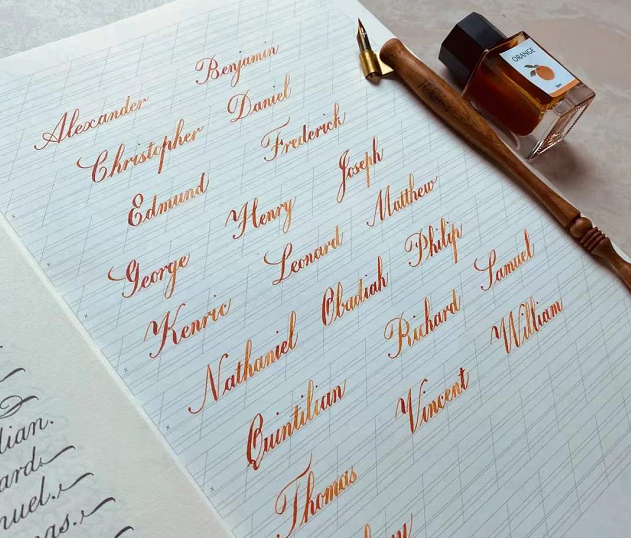 Alexander Benjamin
Christopher Daniel
Edmund Frederick
George Henry Joseph
Kenric Leonard Matthew
Nathaniel Obadiah Philip
Quintilian Richard Samuel
Thomas Vincent William
ORANGE
lian.
ard
uel.
as.